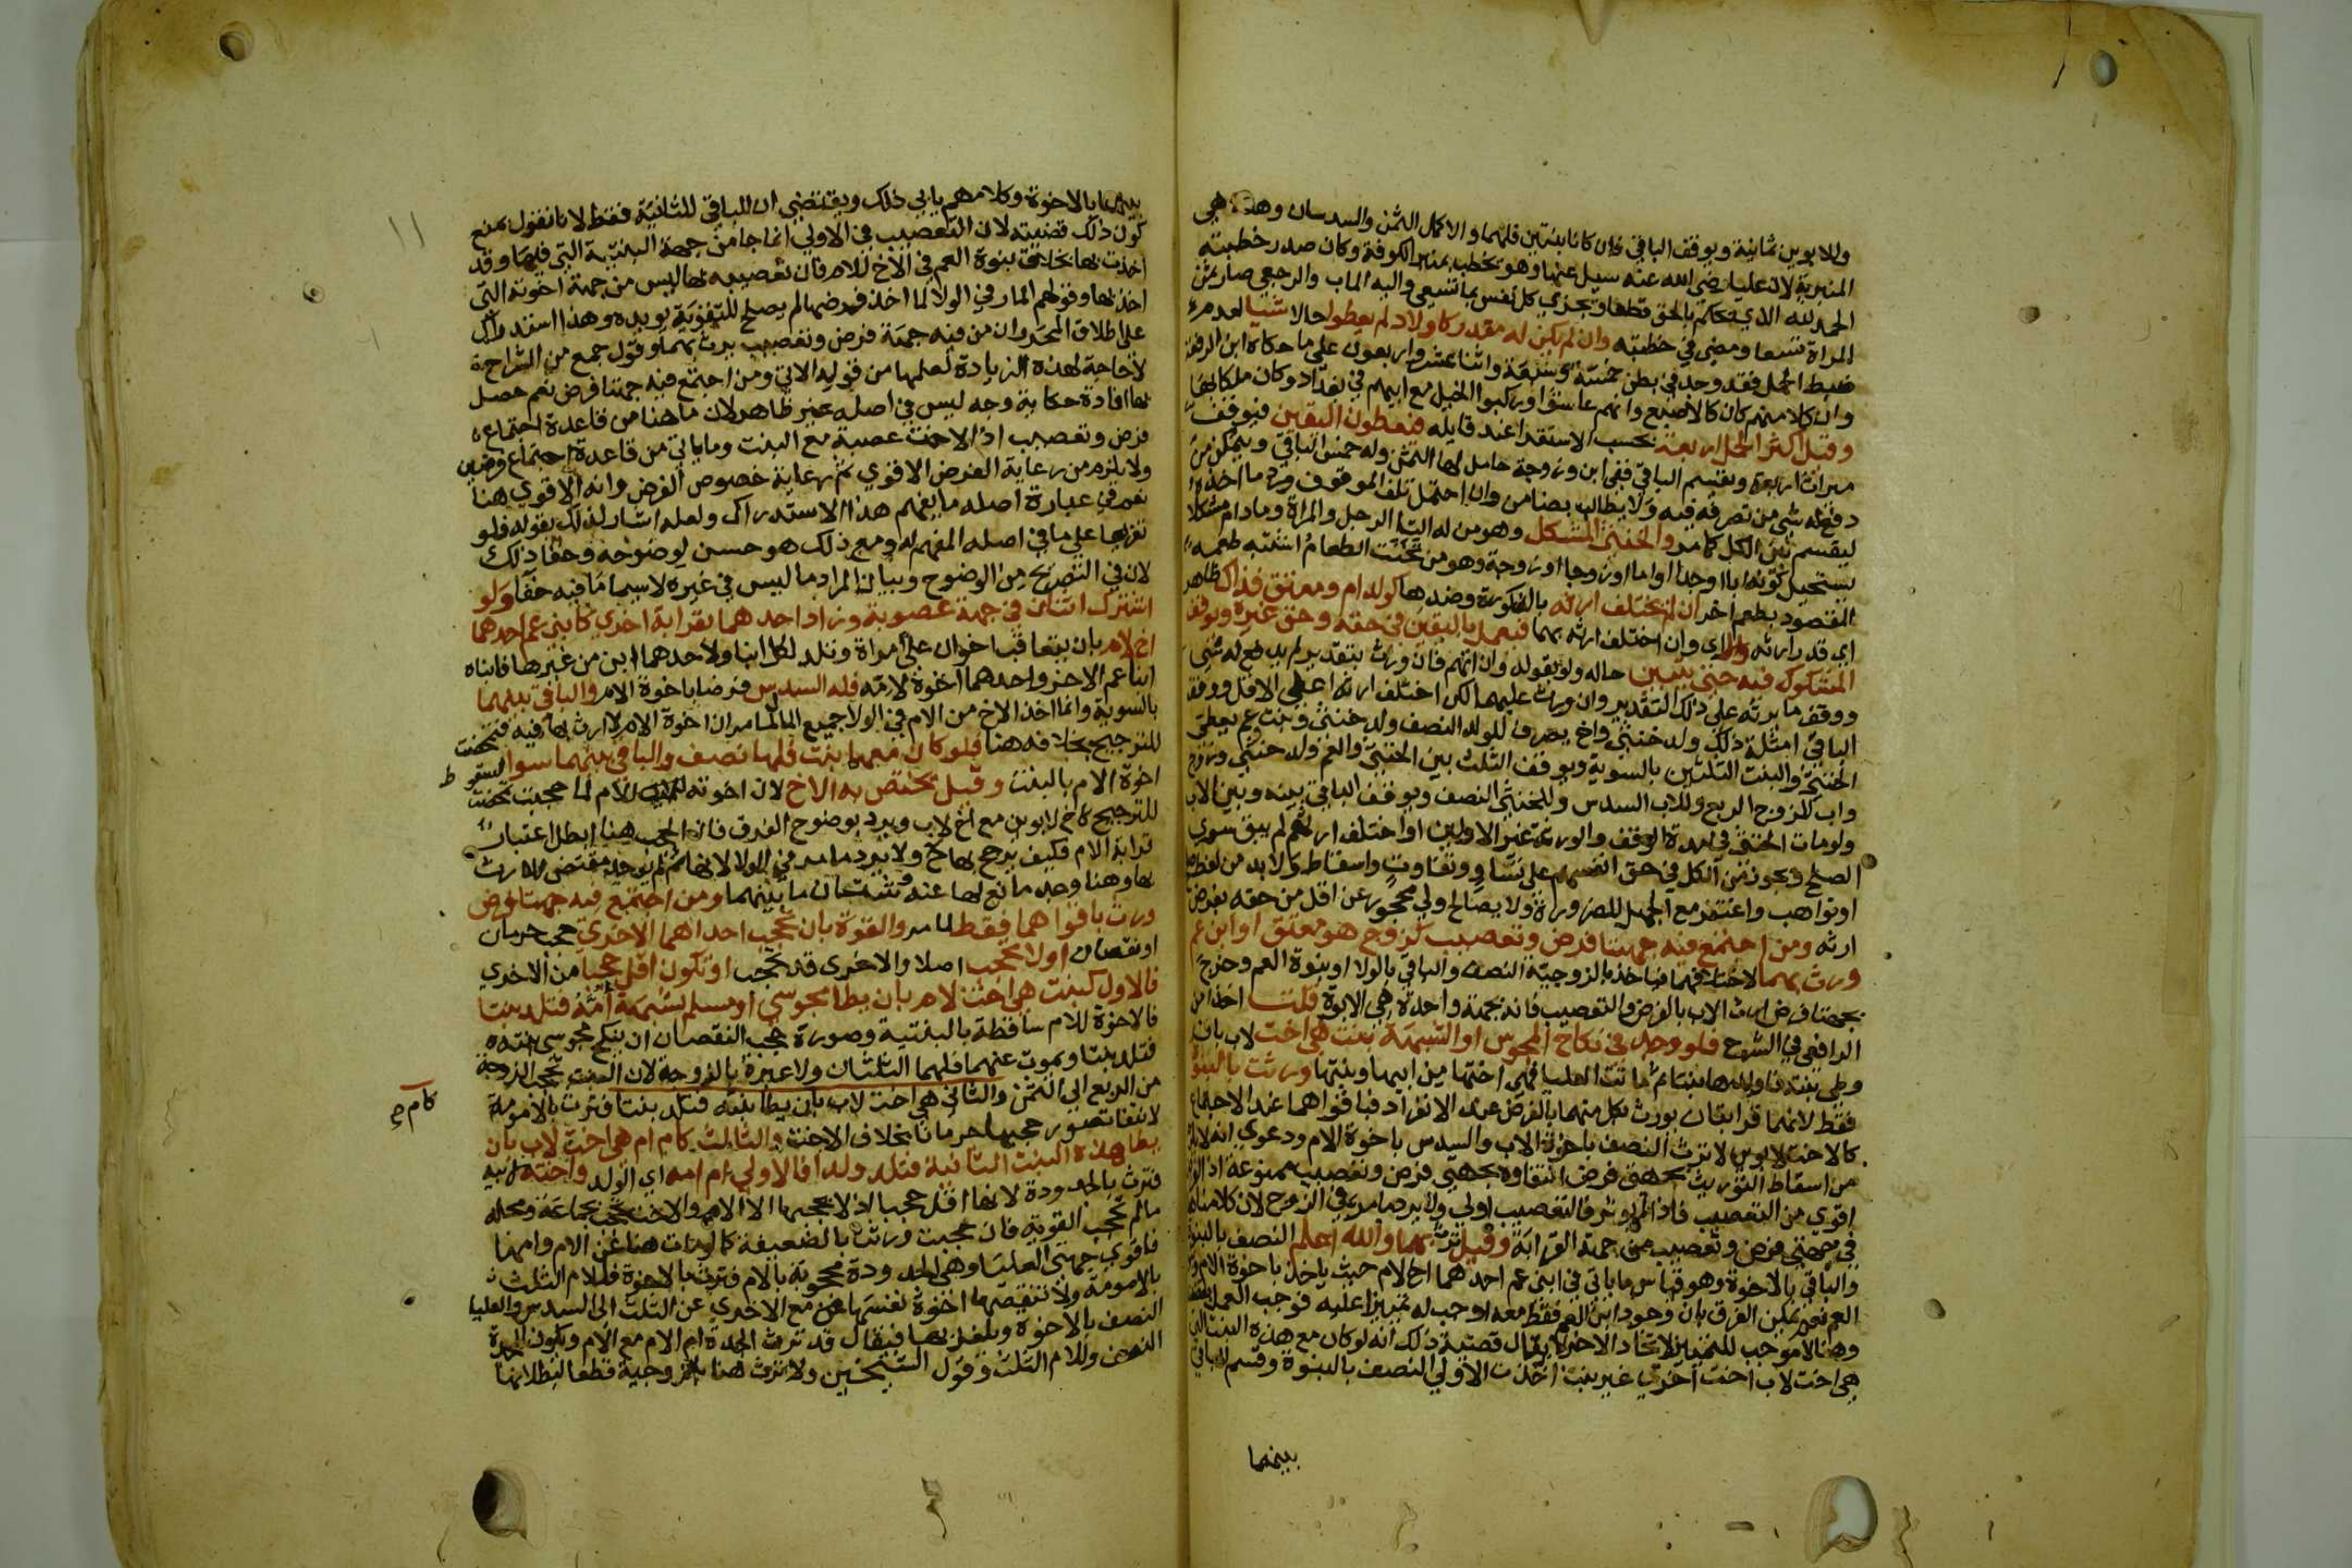 وللابوين ثمانية ويوقف الباقي فان كانا بنتين فلهما والاكمل الثمن والسدسان وهذه هي
المنبرية لان عليا رضي الله عنه سيل عنها وهو يخطب بمنبر الكوفة وكان صدر خطبته
الحمد لله الذي يحكم بالحق قطعا ويجزي كل نفس بما تسعى واليه الماب والرجعي صار ثمن
المراة تسعا ومضى في خطبته وان لم يكن له مقدر كاولاد لم يعطوا حالا شيا لعدم
ضبط الحمل فقد وجد في بطن خمسة وسبعة واثنا عشر واربعون على ما حكاه ابن الرفعة
وان كلا منهم كان كالاصبع وانهم عاشوا وركبوا الخيل مع ابيهم في بغداد وكان ملكا بها
وقيل اكثر الحمل اربعة بحسب الاستقرا عند قايله فيعطون اليقين فيوقف
ميراث اربعة ويقسم الباقي ففي ابن وزوجة حامل لها الثمن وله خمس الباقي ويمكن من
دفع له شي من تصرفه فيه ولا يطالب بضامن وان احتمل تلف الموقوف ورد ما اخذه
ليقسم بين الكل كما مر والخنثى المشكل وهو من له التا الرجل والمراة وما دام مشكلا
يستحيل كونه ابا او جدا او اما او زوجا او زوجة وهو من تخنث الطعام اشتبه طعمه
المقصود بطعم اخر ان لم يختلف ارثه بالذكورة وضدها كولد ام ومعتق فذاك ظاهر
اي قدر ارثه والا اي وان اختلف ارثه بهما فيعمل باليقين في حقه وحق غيره ويوقف
المشكوك فيه حتى يتبين حاله ولو بقوله وان اتهم فان ورث بتقدير لم يدفع له شي
ووقف ما يرثه على ذلك التقدير وان ورث عليهما لكن اختلف ارثه اعطي الاقل ووقف
الباقي امثلة ذلك ولد خنثى واخ يصرف للولد النصف ولد خنثى وبنت وعم يعطى
الخنثى والبنت الثلثين بالسوية ويوقف الثلث بين الخنثى والعم ولد خنثى وزوج
واب للزوج الربع وللاب السدس وللخنثى النصف ويوقف الباقي بينه وبين الاب
ولو مات الخنثى في مدة الوقف والورثة غير الاولين او اختلف ارثهم لم يبق سوى
الصلح ويجوز من الكل في حق انفسهم على تساو وتفاوت واسقاط ولا بد من لفظ
او تواهب واغتفر مع الجهل للضرورة ولا يصالح ولي محجور عن اقل من حقه بفرض
ارثه ومن اجتمع فيه جهتا فرض وتعصيب كزوج هو معتق او ابن عم
ورث بهما لاختلافهما فياخذ بالزوجية النصف والباقي بالولا او بنوة العم وخرج
بجهتا فرض ارث الاب بالفرض والتعصيب فانه بجهة واحدة هي الابوة قلت اخذا من
الرافعي في الشرح فلو وجد في نكاح المجوس او الشبهة بنت هي اخت لاب بان
وطي بنته فاولدها بنتا ثم ماتت العليا فهي اختها من ابيها وبنتها ورثت بالبنوة
فقط لانهما قرابتان يورث بكل منهما بالفرض عند الانفراد فباقواهما عند الاجتماع
كالاخت لابوين لا ترث النصف باخوة الاب والسدس باخوة الام ودعوي انه لا بد
من اسقاط التوريث بجهتي فرض انتفاؤه بجهتي فرض وتعصيب ممنوعة اذ الفرض
اقوي من التعصيب فاذا لم يوثر فالتعصيب اولي ولا يرد ما مر في الزوج لان كلامنا
في جهتي فرض وتعصيب من جهة القرابة وقيل ترث بهما والله اعلم النصف بالبنوة
والباقي بالاخوة وهو قياس ما ياتي في ابني عم احدهما اخ لام حيث ياخذ باخوة الام
العم نعم يمكن الفرق بان وجود ابن العم فقط معه اوجب له تمييزا عليه فوجب العمل
وهنا لا موجب للتمييز لاتحاد الاخوة لا يقال قضية ذلك انه لو كان مع هذه البنت التي
هي اخت لاب اخت اخري غير بنت اخذت الاولي النصف بالبنوة وقسم الباقي
بينهما
١١
بينهما بالاخوة وكلامهم يابي ذلك ويقتضي ان الباقي للثانية فقط لانا نقول بمنع
كون ذلك قضيته لان التعصيب في الاولي انما جا من جهة البنتية التي فيها وقد
اخذت بها بخلاف بنوة العم في الاخ للام فان تعصيبه بها ليس من جهة اخوته التي
اخذ بها وقولهم المار في الولا لما اخذ فرضها لم يصلح للتقوية يويده وهذا استدراك
على اطلاق المحرر وان من فيه جهة فرض وتعصيب يرث بهما وقول جمع من الشراح
لا حاجة لهذه الزيادة لعلمها من قوله الاتي ومن اجتمع فيه جهتا فرض نعم حصل
بها افادة حكاية وجه ليس في اصله غير ظاهر لان ما هنا من قاعدة اجتماع
فرض وتعصيب اذ الاخت عصبة مع البنت وما ياتي من قاعدة اجتماع فرضين
ولا يلزم من رعاية الفرض الاقوي ثم رعاية خصوص الفرض وانه الاقوي هنا
نعم في عبارة اصله ما يفهم هذا الاستدراك ولعله اشار لذلك بقوله فلو
تفريعا على ما في اصله المفهم له ومع ذلك هو حسن لوضوحه وخفا ذلك
لان في التصريح من الوضوح وبيان المراد ما ليس في غيره لا سيما ما فيه خفا ولو
اشترك اثنان في جهة عصوبة وزاد احدهما بقرابة اخري كابني عم احدهما
اخ لام بان يتعاقب اخوان على امراة وتلد لكل ابنا ولاحدهما ابن من غيرها فابناه
ابنا عم الاخر واحدهما اخوه لامه فله السدس فرضا باخوة الام والباقي بينهما
بالسوية وانما اخذ الاخ من الام في الولا جميع المال لما مر ان اخوة الام لا ارث بها فيه فتمحضت
للترجيح بخلافه هنا فلو كان معهما بنت فلها نصف والباقي بينهما سوا لسقوط
اخوة الام بالبنت وقيل يختص به الاخ لان اخوته للام لما حجبت تمحضت
للترجيح كاخ لابوين مع اخ لاب ويرد بوضوح الفرق فان الحجب هنا ابطل اعتبار
قرابة الام فكيف يرجح بها ولا يرد ما مر في الولا لانها ثم لم يوجد مقتضى للارث
بها وهنا وجد مانع لها عنه وشتان ما بينهما ومن اجتمع فيه جهتا فرض
ورث باقواهما فقط لما مر والقوة بان تحجب احداهما الاخري حجب حرمان
او نقصان او لا تحجب اصلا والاخري قد تحجب او تكون اقل حجبا من الاخري
فالاول كبنت هي اخت لام بان يطا مجوسي او مسلم بشبهة امه فتلد بنتا
فالاخوة للام ساقطة بالبنتية وصورة حجب النقصان ان ينكح مجوسي بنته
فتلد بنتا ويموت عنهما فلهما الثلثان ولا عبرة بالزوجة لان البنت تحجب الزوجة
من الربع الي الثمن والثاني هي اخت لاب بان يطا بنته فتلد بنتا فترث بالامومة
لانتفا تصور حجبها حرمانا بخلاف الاخت والثالث كام ام هي اخت لاب بان
يطا هذه البنت الثانية فتلد ولدا فالاولي ام امه اي الولد واخته لابيه
فترث بالجدودة لانها اقل حجبا اذ لا يحجبها الا الام والاخت يحجبها جماعة ومحله
ما لم تحجب القوية فان حجبت ورثت بالضعيفة كما لو مات هنا عن الام وامها
فاقوي جهتي العليا وهي الجدودة محجوبة بالام فترث بالاخوة فللام الثلث
بالامومة ولا تنقصها اخوة نفسها مع الاخري عن الثلث الى السدس والعليا
النصف بالاخوة ويلغز بها فيقال قد ترث الجدة ام الام مع الام ويكون للجدة
النصف وللام الثلث وقول الشيخين ولا ترث هنا بالزوجية قطعا لبطلانها
كام م